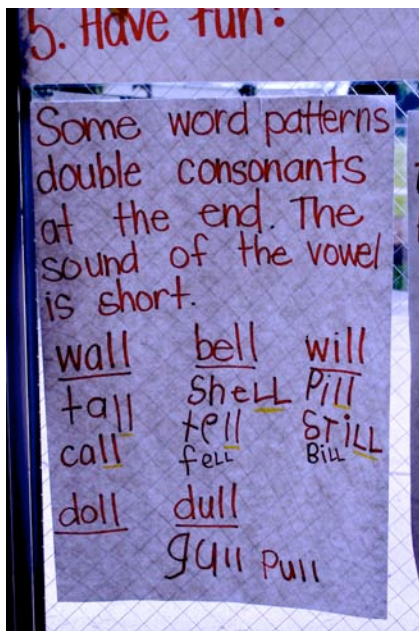 5. Have fun!
Some word patterns
double consonants
at the end. The
sound of the vowel
is short.
wall bell will
tall SheLL Pill
call tell STiLL
feLL BiLL
doll dull
gull Pull